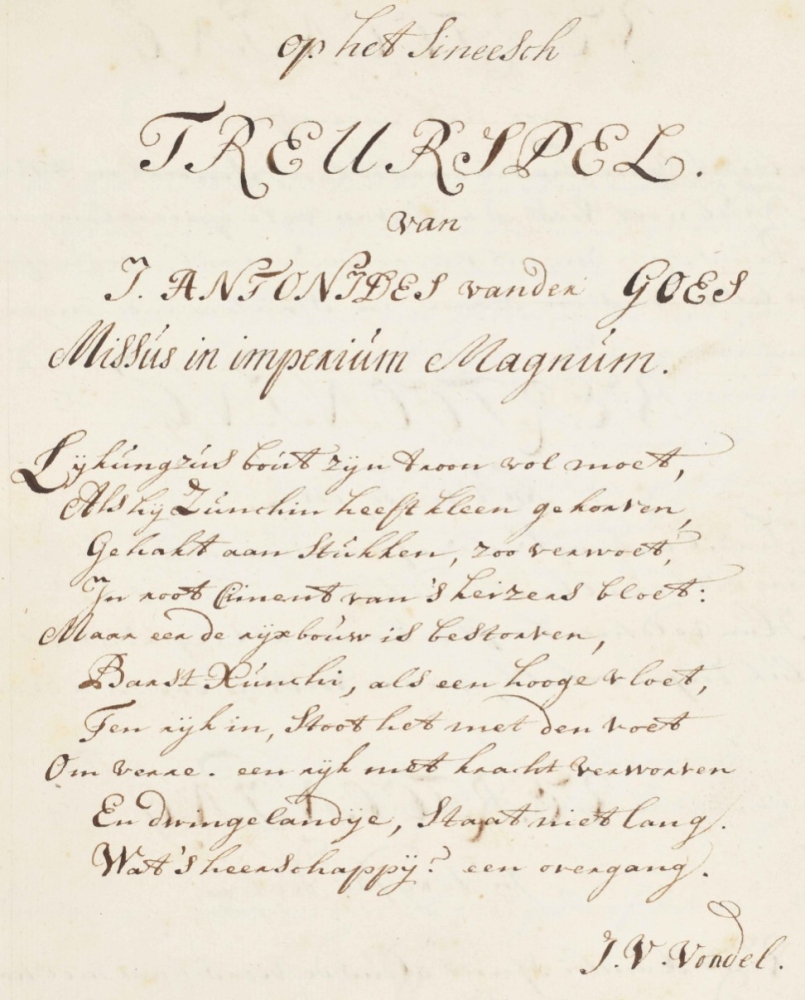 op het Sineesch
TREURSPEL.
van
J. ANTONIDES vander GOES
Missús in imperiúm Magnúm.
Lykúngzús boút zyn troon vol moet,
Als hy Zúnchin heeft kleen gekorven,
Gehakt aan Stúkken, zoo verwoet,
In root Ciment van 's keizers bloet:
Maar eer de ryxboúw is bestorven,
Barst Xúnchi, als een hooge vloet,
Ten ryk in, Stoot het met den voet
Om verre. een ryk met kracht verworven
En dwingelandye, Staat niet lang.
Wat 's heerschappÿ? een overgang.
J. V. Vondel.